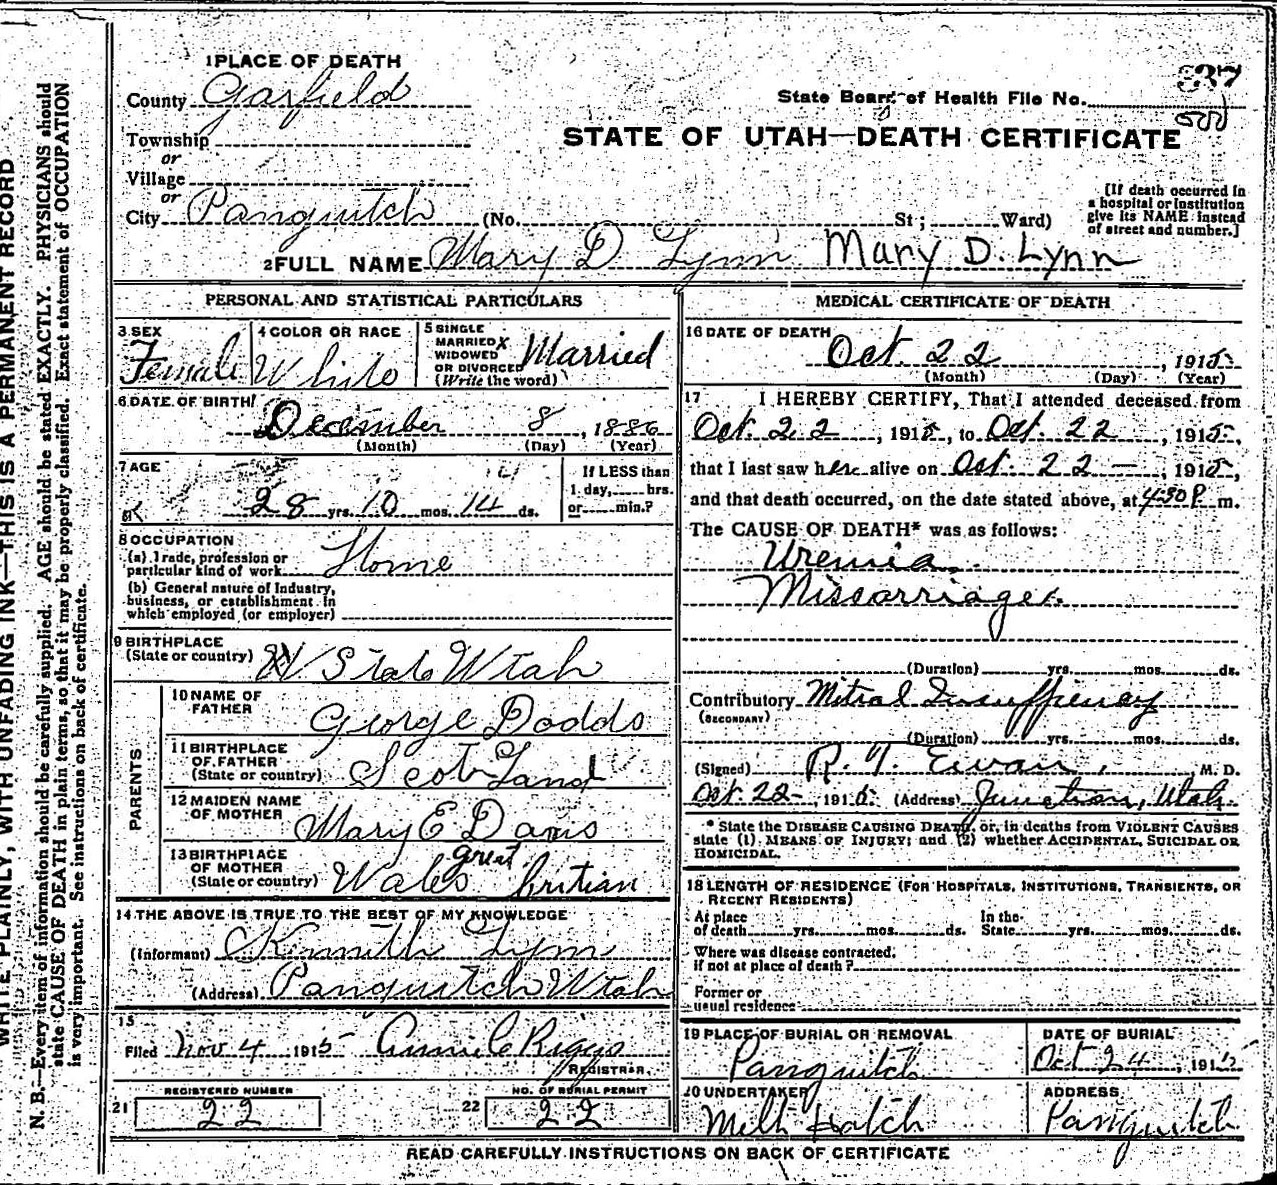 WRITE PLAINLY, WITH UNFADING INK—THIS IS A PERMANENT RECORD
N. B.—Every item of information should be carefully supplied. AGE should be stated EXACTLY. PHYSICIANS should
state CAUSE OF DEATH in plain terms, so that it may be properly classified. Exact statement of OCCUPATION
is very important. See instructions on back of certificate.
1 PLACE OF DEATH
County Garfield
Township
or
Village
or
City Panguitch (No. St; Ward)
State Board of Health File No. 37
STATE OF UTAH—DEATH CERTIFICATE
[If death occurred in
a hospital or institution
give its NAME instead
of street and number.]
2 FULL NAME Mary D Lynn Mary D. Lynn
PERSONAL AND STATISTICAL PARTICULARS
3 SEX Female
4 COLOR OR RACE White
5 SINGLE
MARRIED X
WIDOWED
OR DIVORCED
(Write the word) Married
6 DATE OF BIRTH
December 8, 1886
(Month) (Day) (Year)
7 AGE
28 yrs. 10 mos. 14 ds.
If LESS than
1 day, hrs.
or min.?
8 OCCUPATION
(a) Trade, profession or
particular kind of work Home
(b) General nature of Industry,
business, or establishment in
which employed (or employer)
9 BIRTHPLACE
(State or country) State Utah
PARENTS
10 NAME OF
FATHER George Dodds
11 BIRTHPLACE
OF FATHER
(State or country) Scot Land
12 MAIDEN NAME
OF MOTHER Mary E Davis
13 BIRTHPLACE
OF MOTHER
(State or country) Wales great britian
14 THE ABOVE IS TRUE TO THE BEST OF MY KNOWLEDGE
(Informant) Kennith Lynn
(Address) Panguitch Utah
15
Filed Nov 4 1915 Annie C Riggs
REGISTRAR.
REGISTERED NUMBER
21 22
NO. OF BURIAL PERMIT
22 22
MEDICAL CERTIFICATE OF DEATH
16 DATE OF DEATH
Oct. 22, 1915
(Month) (Day) (Year)
17 I HEREBY CERTIFY, That I attended deceased from
Oct. 22, 1915, to Oct. 22, 1915,
that I last saw her alive on Oct. 22—, 1915,
and that death occurred, on the date stated above, at 4:30 P. m.
The CAUSE OF DEATH* was as follows:
Uremia.
Missarriage.
(Duration) yrs. mos. ds.
Contributory Mitral Insuffiency
(SECONDARY)
(Duration) yrs. mos. ds.
(Signed) R. T. Ewan, M. D.
Oct. 22—, 1915 (Address) Junction, Utah.
* State the DISEASE CAUSING DEATH, or, in deaths from VIOLENT CAUSES
state (1) MEANS OF INJURY; and (2) whether ACCIDENTAL, SUICIDAL OR
HOMICIDAL.
18 LENGTH OF RESIDENCE (FOR HOSPITALS, INSTITUTIONS, TRANSIENTS, OR
RECENT RESIDENTS)
At place
of death yrs. mos. ds.
In the
State yrs. mos. ds.
Where was disease contracted,
if not at place of death?
Former or
usual residence
19 PLACE OF BURIAL OR REMOVAL
Panguitch
DATE OF BURIAL
Oct 24, 1915
20 UNDERTAKER
Melt Hatch
ADDRESS
Panguitch
READ CAREFULLY INSTRUCTIONS ON BACK OF CERTIFICATE